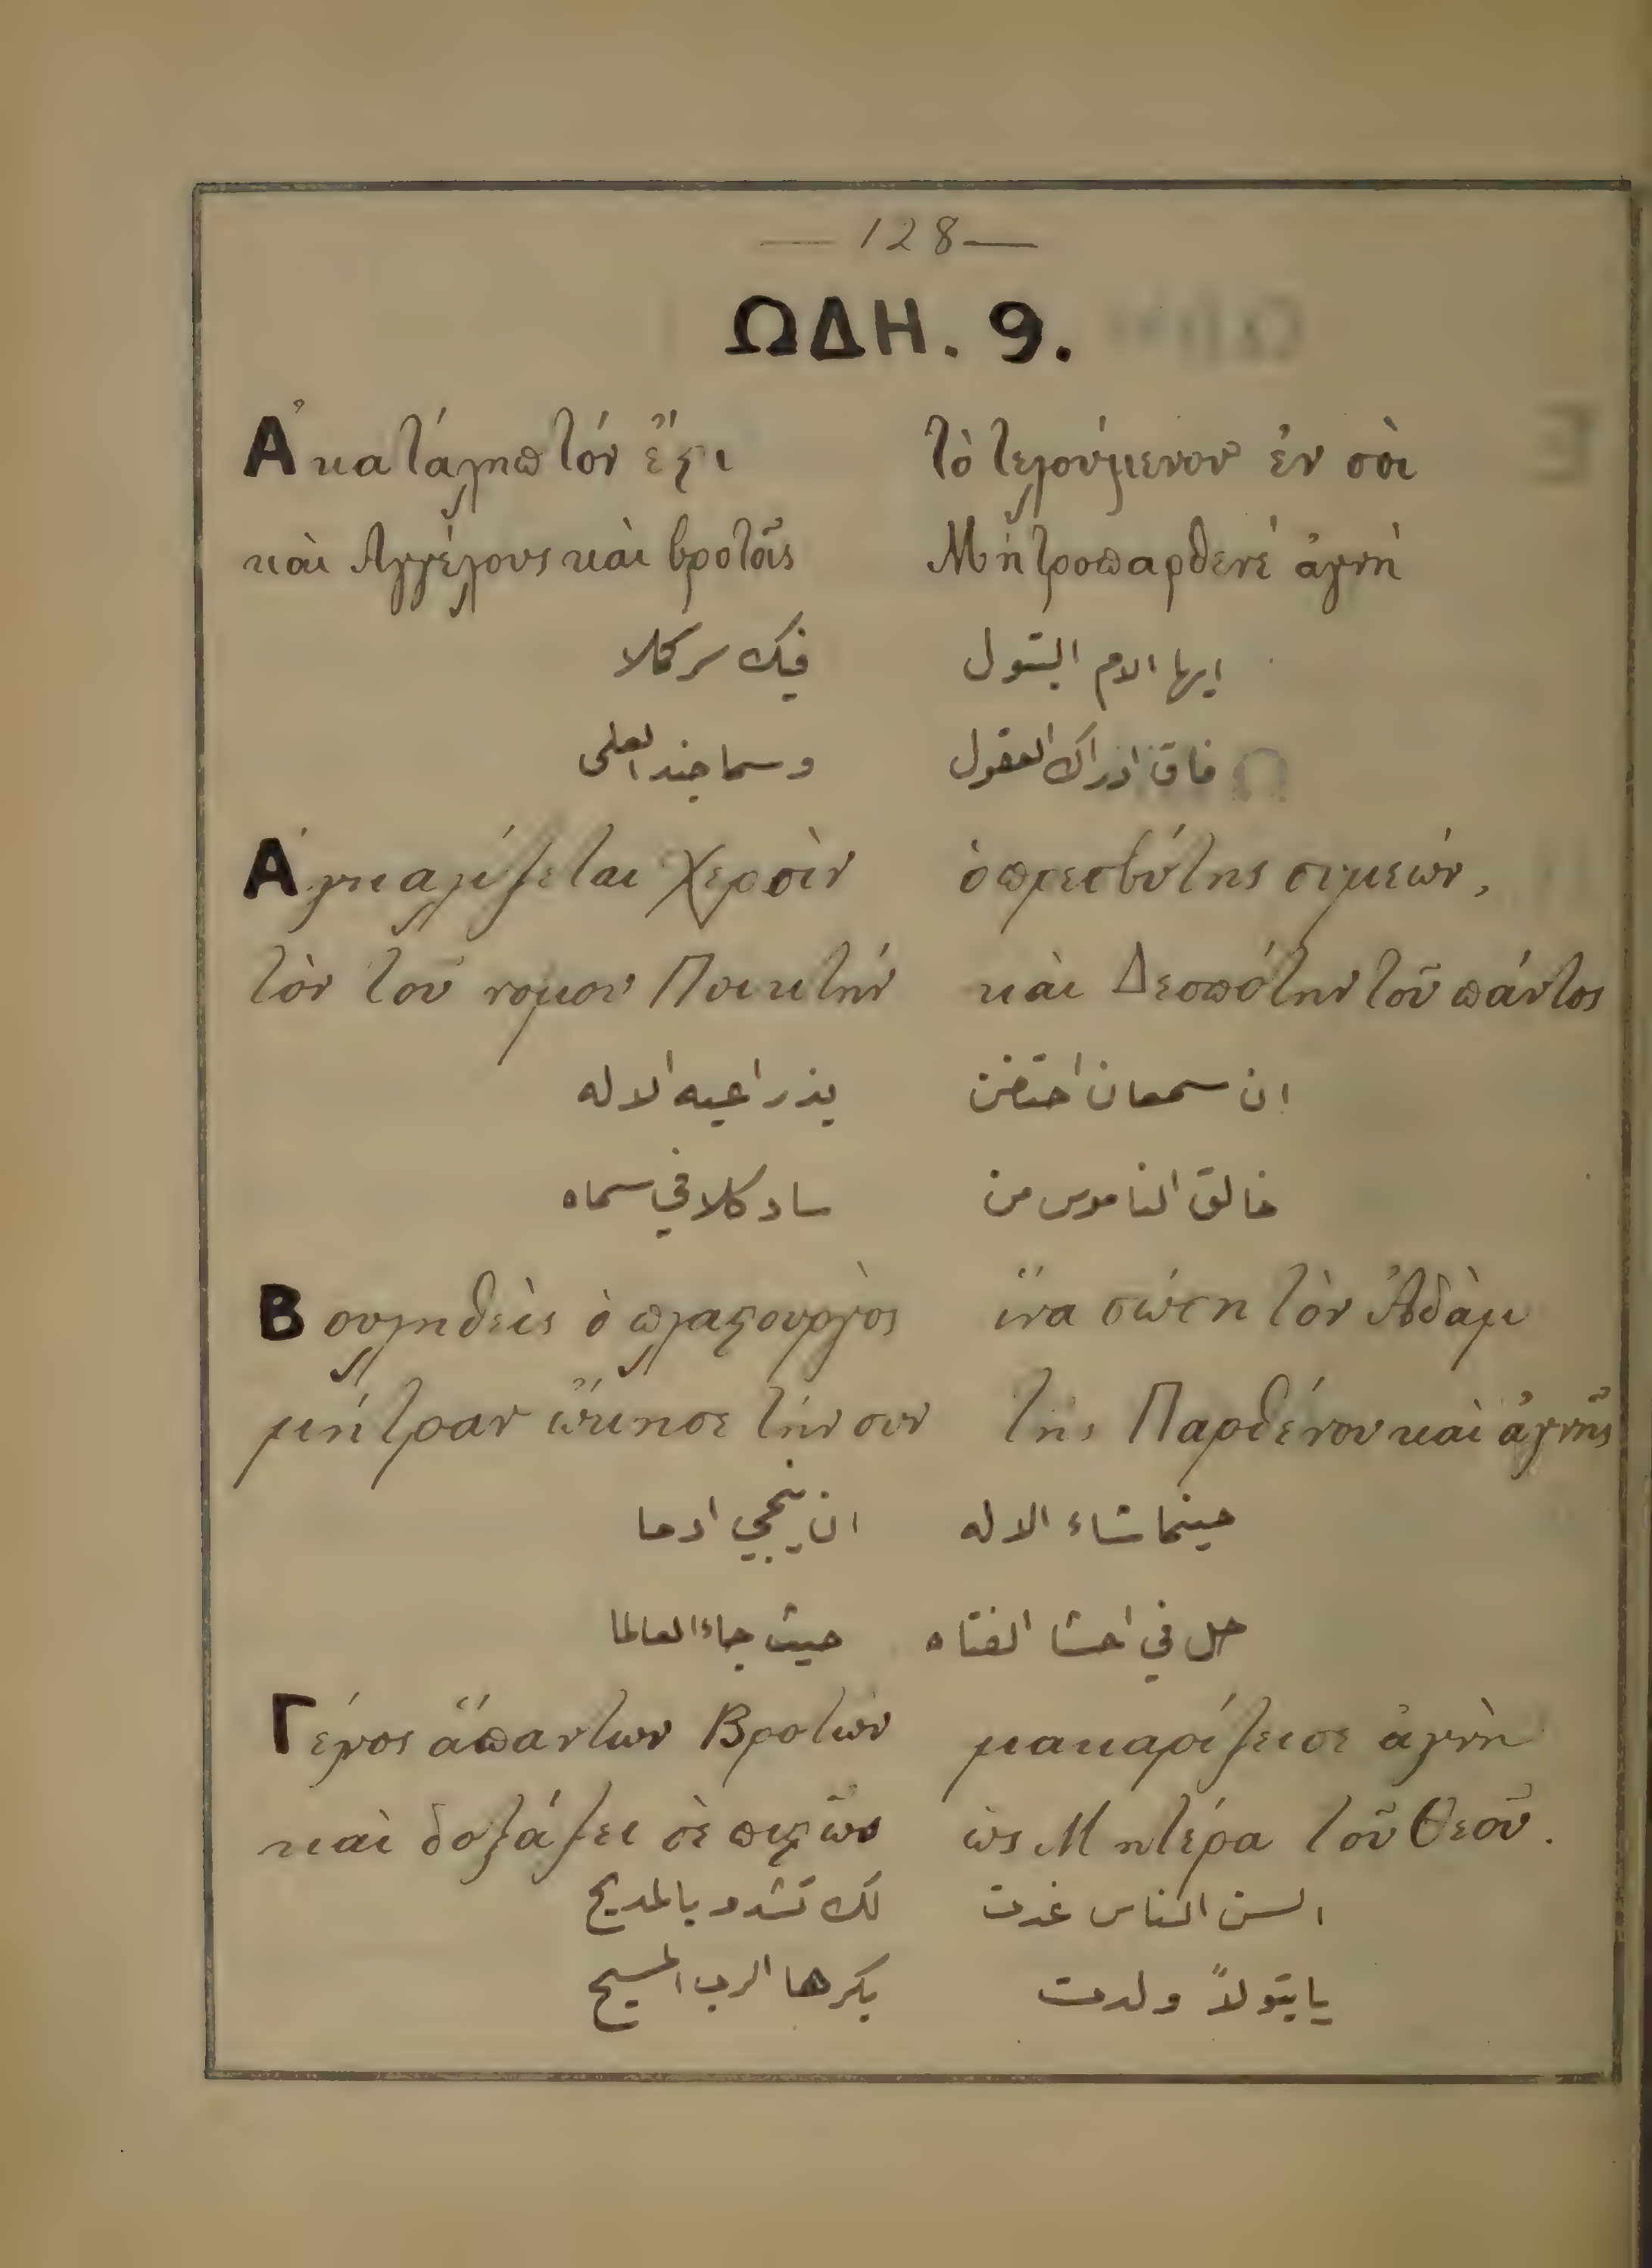 — 128 —
ΩΔΗ. 9.
Ἀκατάληπτόν ἔστι τὸ τελούμενον ἐν σοὶ
καὶ Ἀγγέλους καὶ βροτοῖς Μήτροπαρθενέ ἁγνή
ايها الام البتول فيك سر كملا
فاق ادراك العقول وسما جند العلى
Ἀγκαλίζεται χερσὶν ὁ πρεσβύτης σιμεών,
τὸν τοῦ νομου Ποικτήν καὶ Δεσπότην τοῦ πάντος
ان سمعان احتضن بذراعيه الاله
خالق الناموس من ساد كلا في سماه
Βουληθεὶς ὁ πλαστουργὸς ἵνα σώσῃ τὸν Ἀδὰμ
μήτραν ᾤκησε τήν σου τῆς Παρθένου καὶ ἁγνῆς
حينما شاء الاله ان ينجي ادما
حل في احشا الفتاه حيث جاء العالما
Γένος ἅπαντων Βροτῶν μακαρίζει σε ἁγνὴ
καὶ δοξάζει σὲ πιστῶς ὡς Μητέρα τοῦ Θεοῦ.
السن الناس غدت لك تشدو بالمديح
يا بتولاً ولدت بكرها الرب المسيح